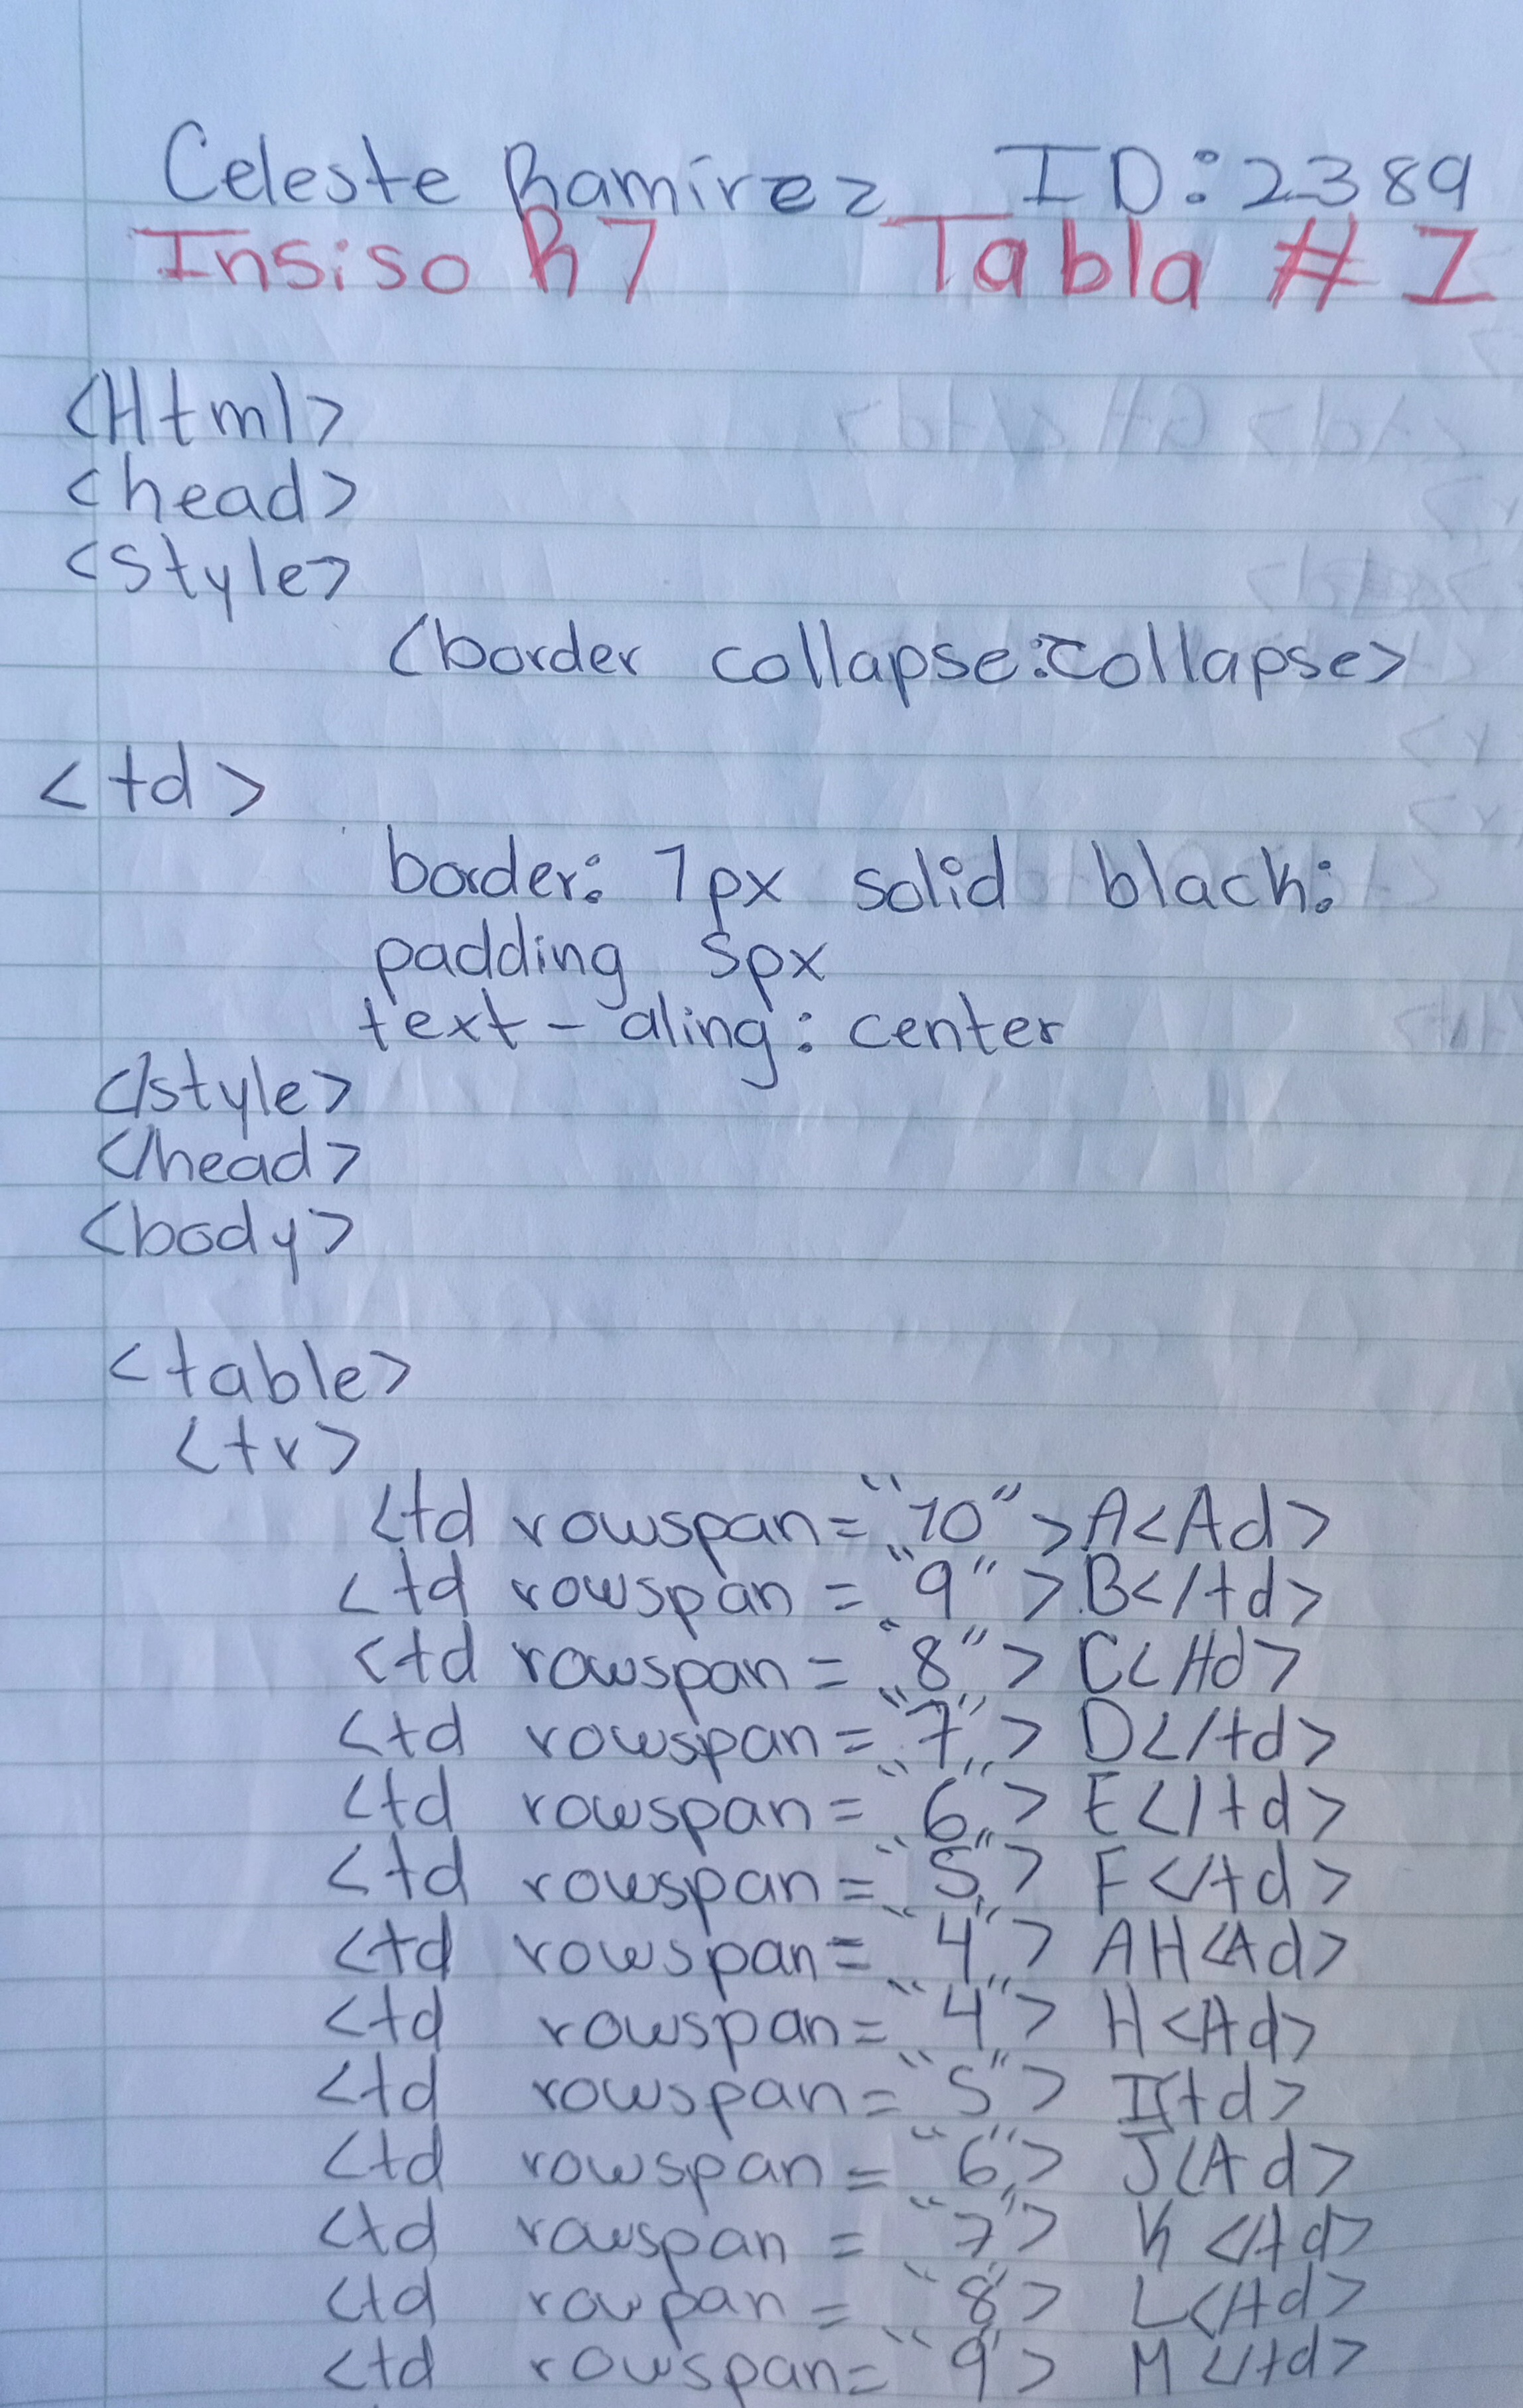 Celeste Ramirez ID:2389
Insiso R7 Tabla # 1
<Html>
<head>
<style>
<border collapse:collapse>
<td>
border: 1px solid black:
padding 5px
text-aling: center
</style>
</head>
<body>
<table>
<tr>
<td rowspan="10">A</td>
<td rowspan="9">B</td>
<td rowspan="8">C</td>
<td rowspan="7">D</td>
<td rowspan="6">E</td>
<td rowspan="5">F</td>
<td rowspan="4">AH</td>
<td rowspan="4">H</td>
<td rowspan="5">I<td>
<td rowspan="6">J</td>
<td rowspan="7">K</td>
<td rowpan="8">L</td>
<td rowspan="9">M</td>